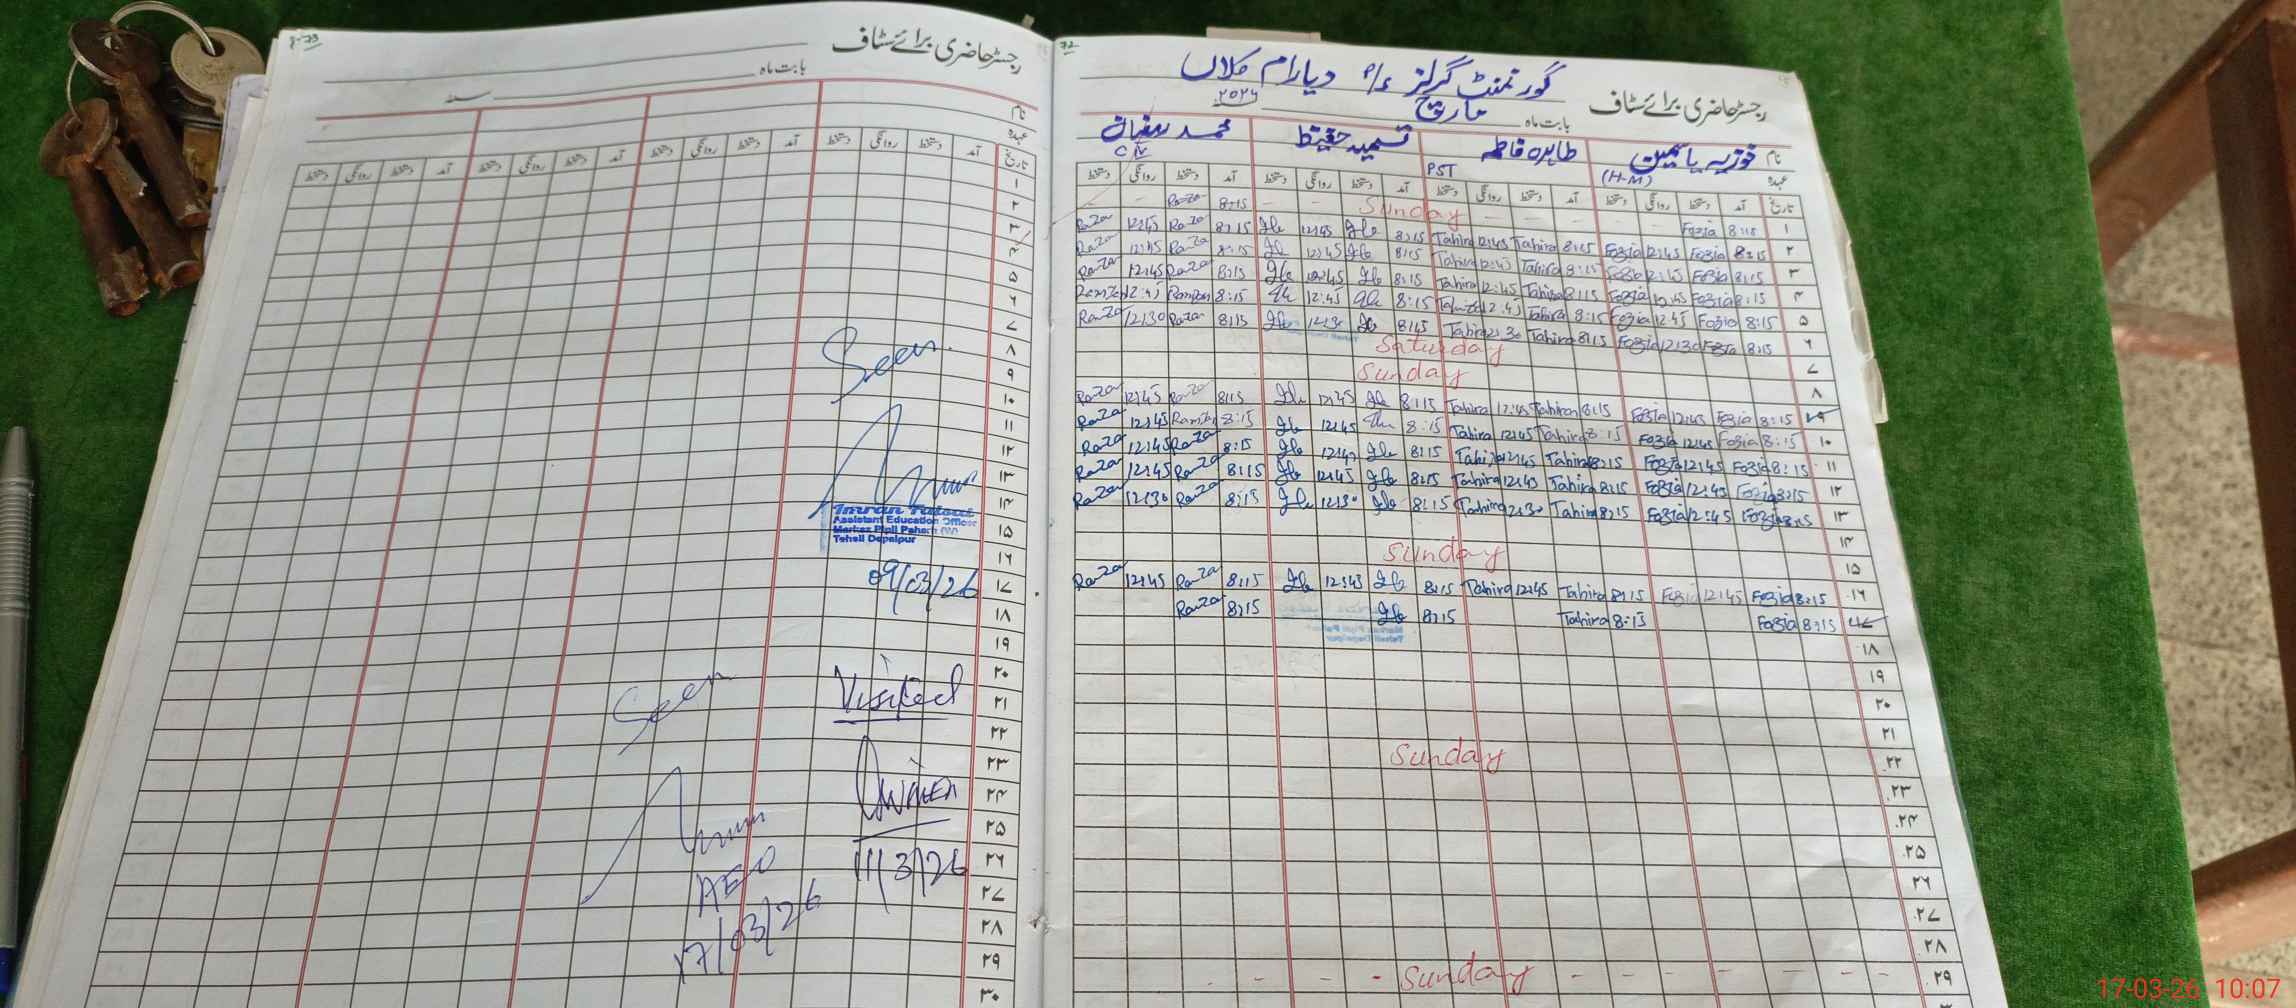 رجسٹر حاضری برائے سٹاف
بابت ماہ
سنہ
نام
عہدہ
تاریخ آمد دستخط روانگی دستخط آمد دستخط روانگی دستخط آمد دستخط روانگی دستخط آمد دستخط روانگی دستخط
۱
۲
۳
۴
۵
۶
۷
۸
۹
۱۰
۱۱
۱۲
۱۳
۱۴
۱۵
۱۶
۱۷
۱۸
۱۹
۲۰
۲۱
۲۲
۲۳
۲۴
۲۵
۲۶
۲۷
۲۸
۲۹
۳۰
Seen.
Assistant Education Officer
Tehsil Depalpur
09/03/26
Visited
11/3/26
Seen
AEO
17/03/26
72
گورنمنٹ گرلز دیارام کلاں
رجسٹر حاضری برائے سٹاف
بابت ماہ مارچ
نام فوزیہ یاسمین طاہرہ فاطمہ تسمیہ حفیظ محمد
عہدہ (H-M) PST
تاریخ آمد دستخط روانگی دستخط آمد دستخط روانگی دستخط آمد دستخط روانگی دستخط آمد دستخط روانگی دستخط
۱ 8:15 Fozia Sunday 8:15 Raza
۲ 8:15 Fozia 12:45 Fozia 8:15 Tahira 12:45 Tahira 8:15 12:45 8:15 Raza 12:45 Raza
۳ 8:15 Fozia 12:45 Fozia 8:15 Tahira 12:45 Tahira 8:15 12:45 8:15 Raza 12:45 Raza
۴ 8:15 Fozia 12:45 Fozia 8:15 Tahira 12:45 Tahira 8:15 12:45 8:15 Raza 12:45 Raza
۵ 8:15 Fozia 12:45 Fozia 8:15 Tahira 12:45 8:15 12:45 8:15 12:45
۶ 8:15 Fozia 12:30 Fozia 8:15 Tahira 12:30 Tahira 8:15 12:30 8:15 Raza 12:30 Raza
۷ Saturday
۸ Sunday
۹ 8:15 Fozia 12:45 Fozia 8:15 Tahira 12:45 Tahira 8:15 12:45 8:15 Raza 12:45 Raza
۱۰ 8:15 Fozia 12:45 Fozia 8:15 Tahira 12:45 Tahira 8:15 12:45 8:15 12:45 Raza
۱۱ 8:15 Fozia 12:45 Fozia 8:15 Tahira 12:45 Tahira 8:15 12:45 8:15 Raza 12:45 Raza
۱۲ 8:15 Fozia 12:45 Fozia 8:15 Tahira 12:45 Tahira 8:15 12:45 8:15 Raza 12:45 Raza
۱۳ 8:15 Fozia 12:45 Fozia 8:15 Tahira 12:30 Tahira 8:15 12:30 8:15 Raza 12:30 Raza
۱۴
۱۵ Sunday
۱۶ 8:15 Fozia 12:45 Fozia 8:15 Tahira 12:45 Tahira 8:15 12:45 8:15 Raza 12:45 Raza
۱۷ 8:15 Fozia 8:15 Tahira 8:15 8:15 Raza
۱۸
۱۹
۲۰
۲۱
۲۲ Sunday
۲۳
۲۴
۲۵
۲۶
۲۷
۲۸
۲۹ Sunday
17-03-26 10:07